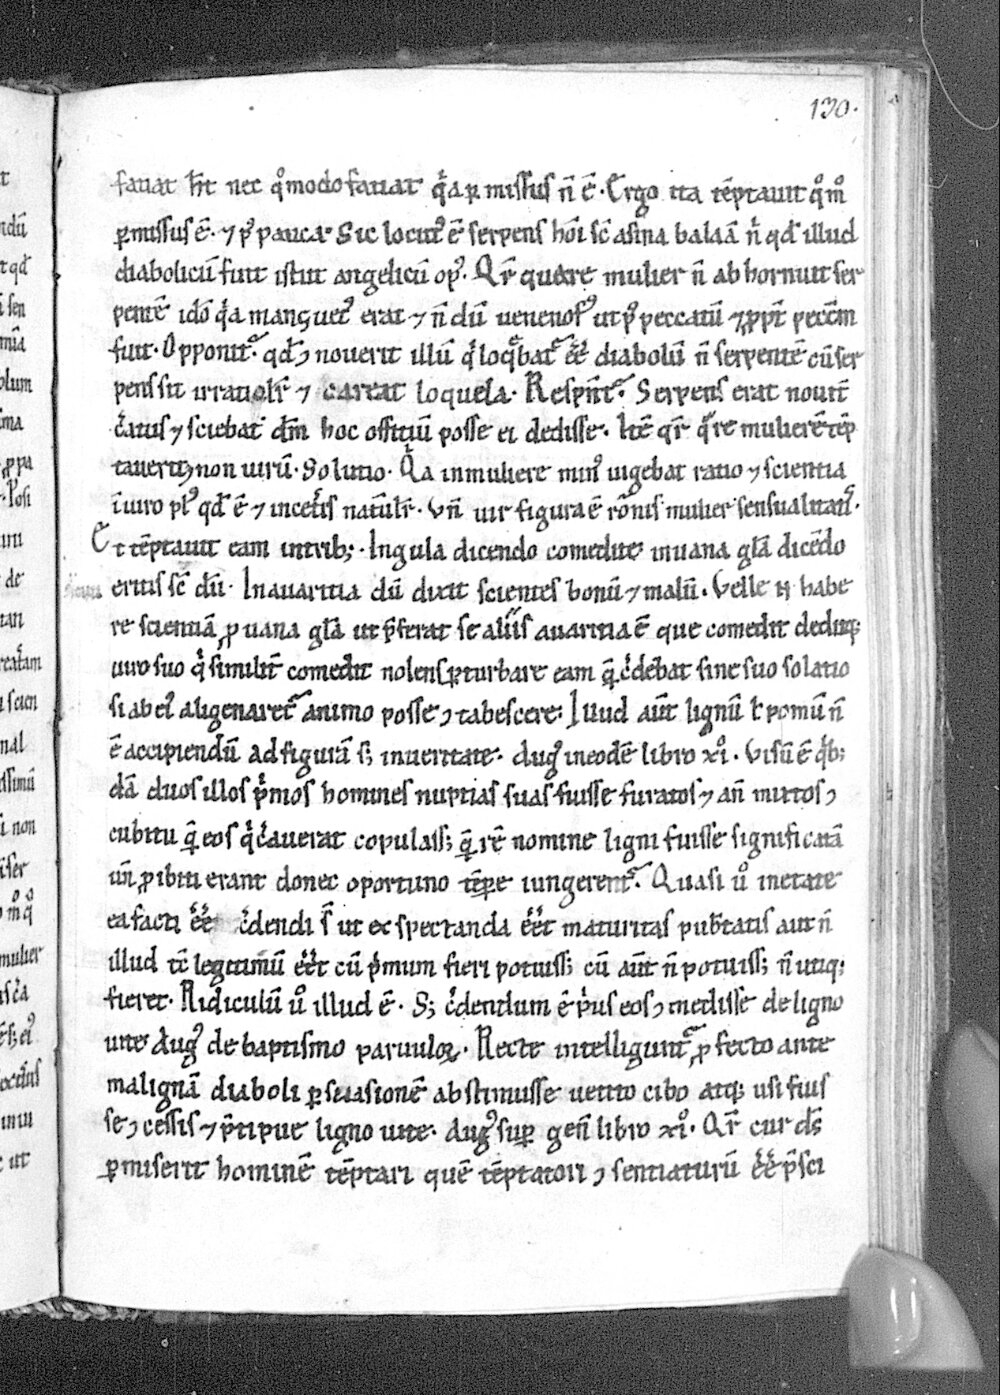 130.
fatiat hꝉt nec qͦmodo fatiat qͥa ꝑ missus n̄ ē. Ergo ita tēptauit qͦm̊
ꝑmissus ē. ⁊ pꝰ pauca. Sic locutꝰ ē serpens hōi sͨ asina balaā n̄ qd illud
diabolicū fuit istut angelicū opꝰ. Qr̄ quare mulier n̄ abhorruit ser
pentē idō qͥa mansuetꝰ erat ⁊ n̄ dū uenenosꝰ ut pꝰ peccatū ⁊ ꝓpt̄ pecc̄m
fuit. Opponit᷑. qd ꝯ nouerit illū qͥ loq̄bat᷑ ēē diabolū n̄ serpentē cū ser
pens sit irrational̄r ⁊ careat loquela. Respn̄t᷑. Serpens erat nouit̄
cͣtus ⁊ sciebat dm̄ hoc offitiū posse ei dedisse. Itē qr̄ qͣre mulierē tēp
tauerit ⁊ non uirū. Solutio. Qͥa in muliere minꝰ uigebat ratio ⁊ scientia
ī uiro plꝰ qd ē ⁊ in cet̄is natūlr̄. Vn̄ uir figura ē rōnis mulier sensualitatꝭ.
Et tēptauit eam in trib;. In gula dicendo comedite in uana gl̄a dicēdo
eritis sͨ dii. In auaritia dū dixit scientes bonū ⁊ malū. Velle n̄ habe
re scientiā ꝓ uana gl̄a ut p̄ferat se aliis auaritia ē que comedit deditq;
uiro suo qͥ similit̄ comedit nolens ꝑturbare eam q̄ cͤdebat sine suo solatio
si ab eiꝰ aligenaret᷑ animo posse ꝯtabescere. Illud aūt lignū ꝉ pomū n̄
ē accipiendū ad figurā s; in ueritate. Augꝰ in eodē libro xiͦ. Visū ē qͥb;
dā duos illos pͥmos homines nuptias suas fuisse furatos ⁊ an̄ mixtos ꝯ
cubitu q̄ eos qͥ cͤauerat copulass; quā rē nomine ligni fuisse significatā
un̄ ꝓibiti erant donec oportuno tēpe iungerent᷑. Quasi uͦ in etate
ea facti ēēt cͤdendi s̄ ut expectanda ēēt maturitas pub̄tatis aut n̄
illud tc̄ legitimū ēēt cū pͥmum fieri potuiss; cū aūt n̄ potuiss; n̄ utiq;
fieret. Ridiculū uͦ illud ē. S; cͤdendum ē pͥus eos ꝯmedisse de ligno
uite Augꝰ de baptismo paruuloꝝ. Recte intelligunt᷑ ꝓfecto ante
malignā diaboli ꝑsuasionē abstinuisse uetito cibo atq; usi fuis
se ꝯcessis ⁊ p̄cipue ligno uite. Augꝰ suꝑ gen̄ libro xiͦ. Qr̄ cur dš
ꝑmiserit hominē tēptari quē tēptatori ꝯsentiaturū ēē p̄sci